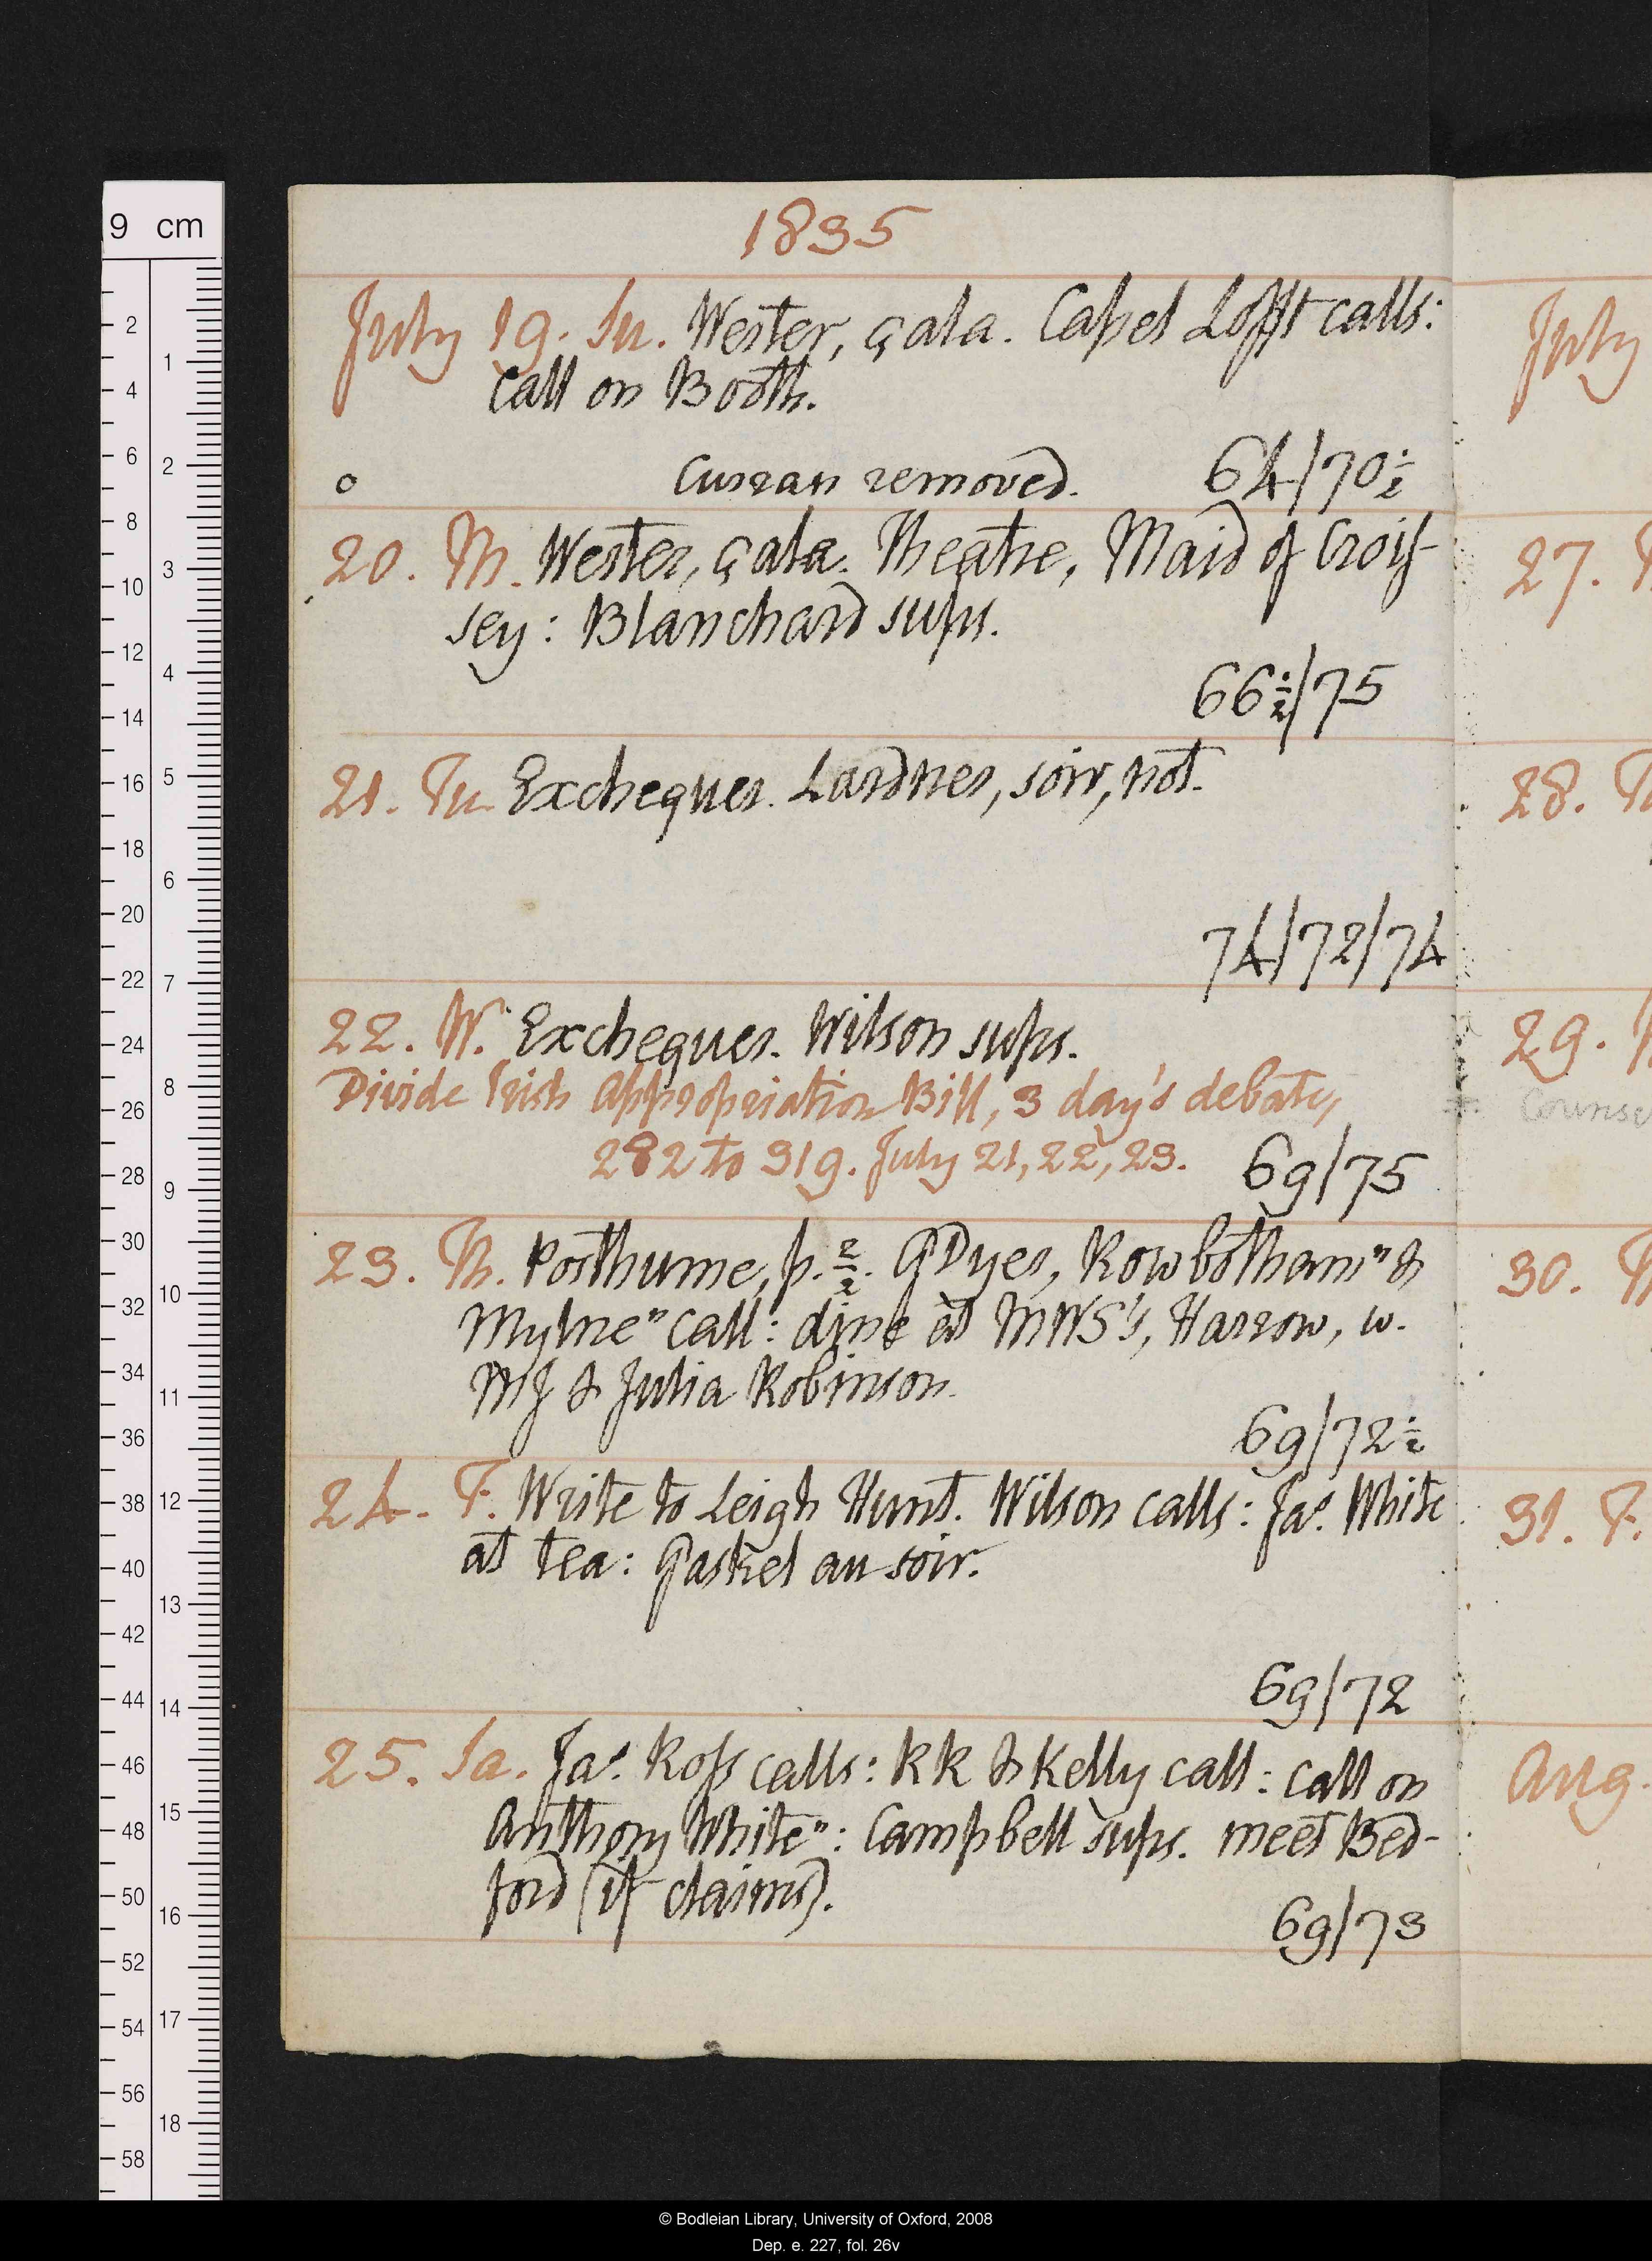 1835
July 19. Su. Wester, çala. Capel Lofft calls:
call on Booth.
Curran removed. 64/70½
20. M. Wester, çala. Theatre, Maid of Crois-
sey: Blanchard sups.
66½/75
21. Tu. Exchequer. Lardner, soir, not.
74/72/74
22. W. Exchequer. Wilson sups.
Divide Irish Appropriation Bill, 3 day's debate,
282 to 319. July 21, 22, 23. 69/75
23. Th. Posthume, p. 2/2. GDyer, Rowbotham" &
Mylne" call: dine at MWS's, Harrow, w.
MJ & Julia Robinson.
69/72½
24. F. Write to Leigh Hunt. Wilson calls: Jas. White
at tea: Gaskel au soir.
69/72
25. Sa. Jas. Ross calls: KK & Kelly call: call on
Anthony White": Campbell sups. meet Bed-
ford (if claims).
69/73
July
27.
28.
29.
Counse
30.
31. F.
Aug.
9 cm
2 4 6 8 10 12 14 16 18 20 22 24 26 28 30 32 34 36 38 40 42 44 46 48 50 52 54 56 58
1 2 3 4 5 6 7 8 9 10 11 12 13 14 15 16 17 18
© Bodleian Library, University of Oxford, 2008
Dep. e. 227, fol. 26v